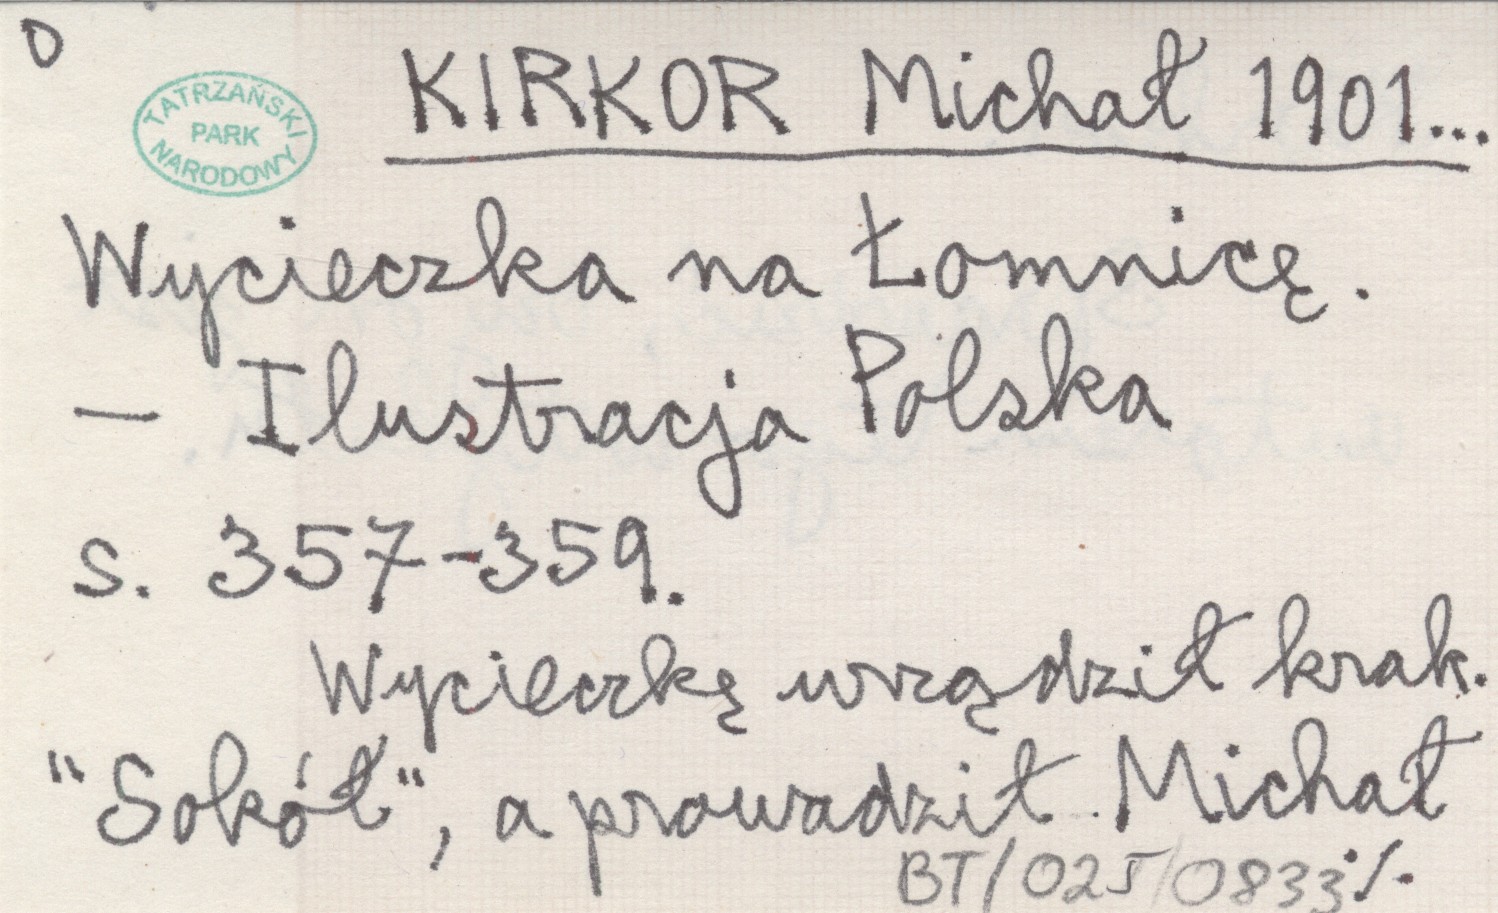 D
TATRZAŃSKI
PARK
NARODOWY
KIRKOR Michał 1901...
Wycieczka na Łomnicę.
— Ilustracja Polska
s. 357-359.
Wycieczkę urządził krak.
"Sokół", a prowadził Michał
BT/025/0833 ·/·